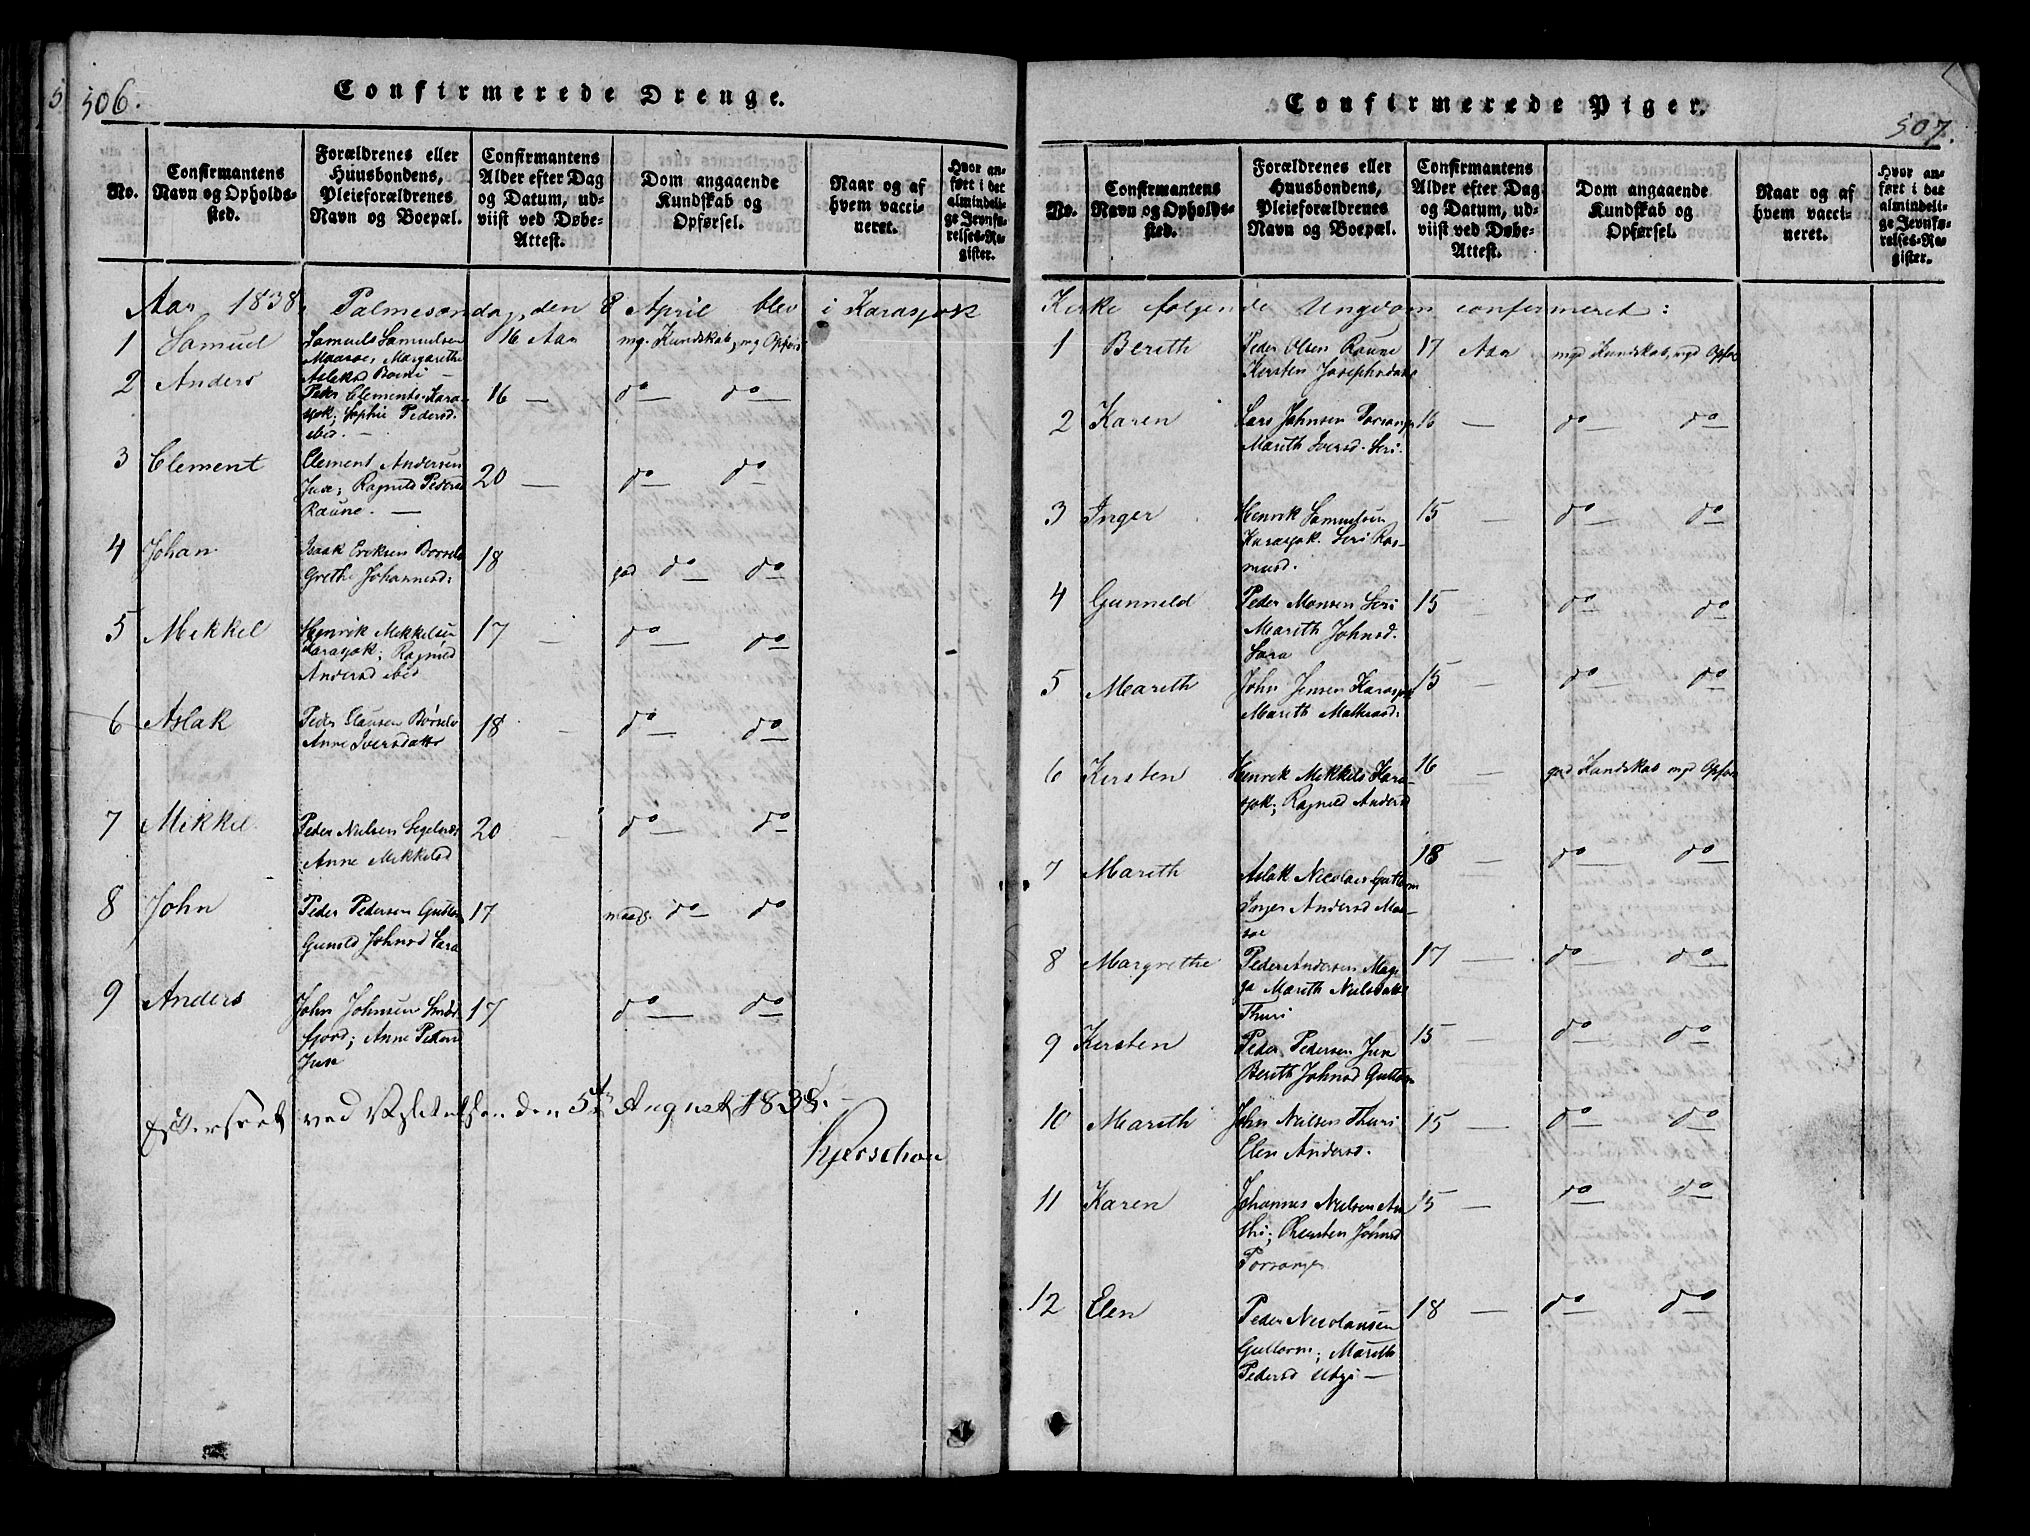 506.
Confirmerede Drenge.
No.
Confirmantens
Navn og Opholds-
sted.
Forældrenes eller
Huusbondens,
Pleieforældrenes
Navn og Boepæl.
Confirmantens
Alder efter Dag
og Datum, ud-
viist ved Døbe-
Attest.
Dom angaaende
Kundskab og
Opførsel.
Naar og af
hvem vacci-
neret.
Hvor an-
ført i det
almindeli-
ge Jevnfø-
relses-Re-
gister.
Aar 1838, Palmesøndag, den 8 April blev i Karasjok
1 Samuel
Samuel Samuelsen
Maasøe, Margarethe
Aslaksd Boeni —
16 Aar
mg. Kundskab, mg Opførs
2 Anders
Peder Clements. Kara-
sjok; Sophie Pedersd.
ibid. —
16 — do — do —
3 Clement
Clement Andersen
Juse; Ragnild Pedersd
Raune. —
20 — do — do —
4 Johan
Isaak Eriksen Børselv
Grethe Johannesd:
18 god do — do
5 Mikkel
Henrik Mikkelsen
Karasjok; Ragnild
Andersd ibid
17 — do — do
6 Aslak
Peder Clausen Børselv
Anne Iversdatter
18 — do — do
7 Mikkel
Peder Nielsen
Anne Mikkelsd
20 — do — do
8 John
Peder Pedersen Guttorm
Gunild Johnsd Sara
17 maadl. do do
9 Anders
John Johnsen Smør-
fjord; Anne Pedersd
Juse
17 do — do
Efterseet ved Visitatsen den 5te August 1838. —
Kjerschow
507.
Confirmerede Piger.
No.
Confirmantens
Navn og Opholds-
sted.
Forældrenes eller
Huusbondens,
Pleieforældrenes
Navn og Boepæl.
Confirmantens
Alder efter Dag
og Datum, ud-
viist ved Døbe-
Attest.
Dom angaaende
Kundskab og
Opførsel.
Naar og af
hvem vacci-
neret.
Hvor an-
ført i det
almindeli-
ge Jevnfø-
relses-Re-
gister.
Kirke følgende Ungdom confirmeret:
1 Berith
Peder Olsen Raune
Kersten Josephsdatt
17 Aar mgd Kundskab, mgd Opfør
2 Karen
Lars Johnsen Porsanger
Marith Iversd. Seri.
16 — do — do
3 Inger
Henrik Samuelsen
Karasjok. Seri Ras-
musd.
15 — do — do
4 Gunneld
Peder Monsen Seri
Marith Johnsd.
Sara
15 — do — do
5 Marith
John Jensen Karasjok
Marith Mathisd:
15 — do — do
6 Kersten
Henrik Mikkels Kara-
sjok; Ragnild Andersd
16 — god Kundskab mgd Opfør
7 Marith
Aslak Nicolai Guttorm
Inger Andersd Maa-
søe
18 — do — do
8 Margrethe
Peder Andersen Mag-
ga Marith Nielsdatt
Thuri
17 — do — do
9 Kersten
Peder Pedersen Juse
Berith Johnsd Guttorm
15 — do — do
10 Marith
John Nielsen Thuri
Elen Andersd.
15 — do — do
11 Karen
Johannes Nielsen An-
thi; Chersten Johnsd
Porsanger
15 — do — do
12 Elen
Peder Nicolausen
Guttorm; Marith
Pedersd Utsji —
18 — do — do